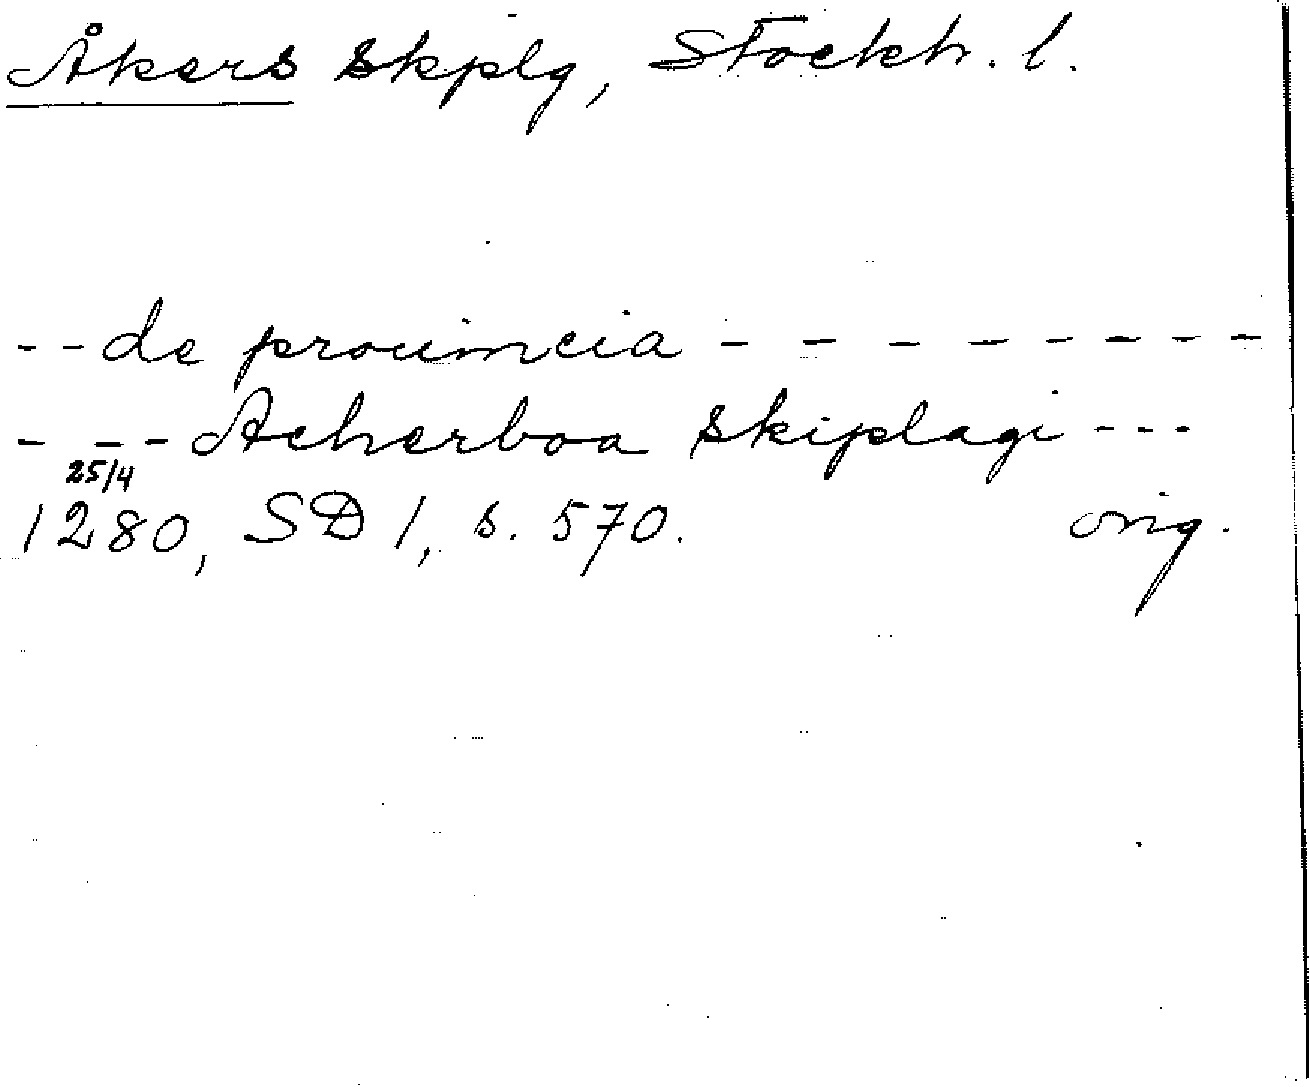 Åkers skplg, Stockh. l.
-- de prouincia - - - - - - - -
- - - Acherboa skiplagi ---
25/4
1280, SD 1, s. 570. orig.